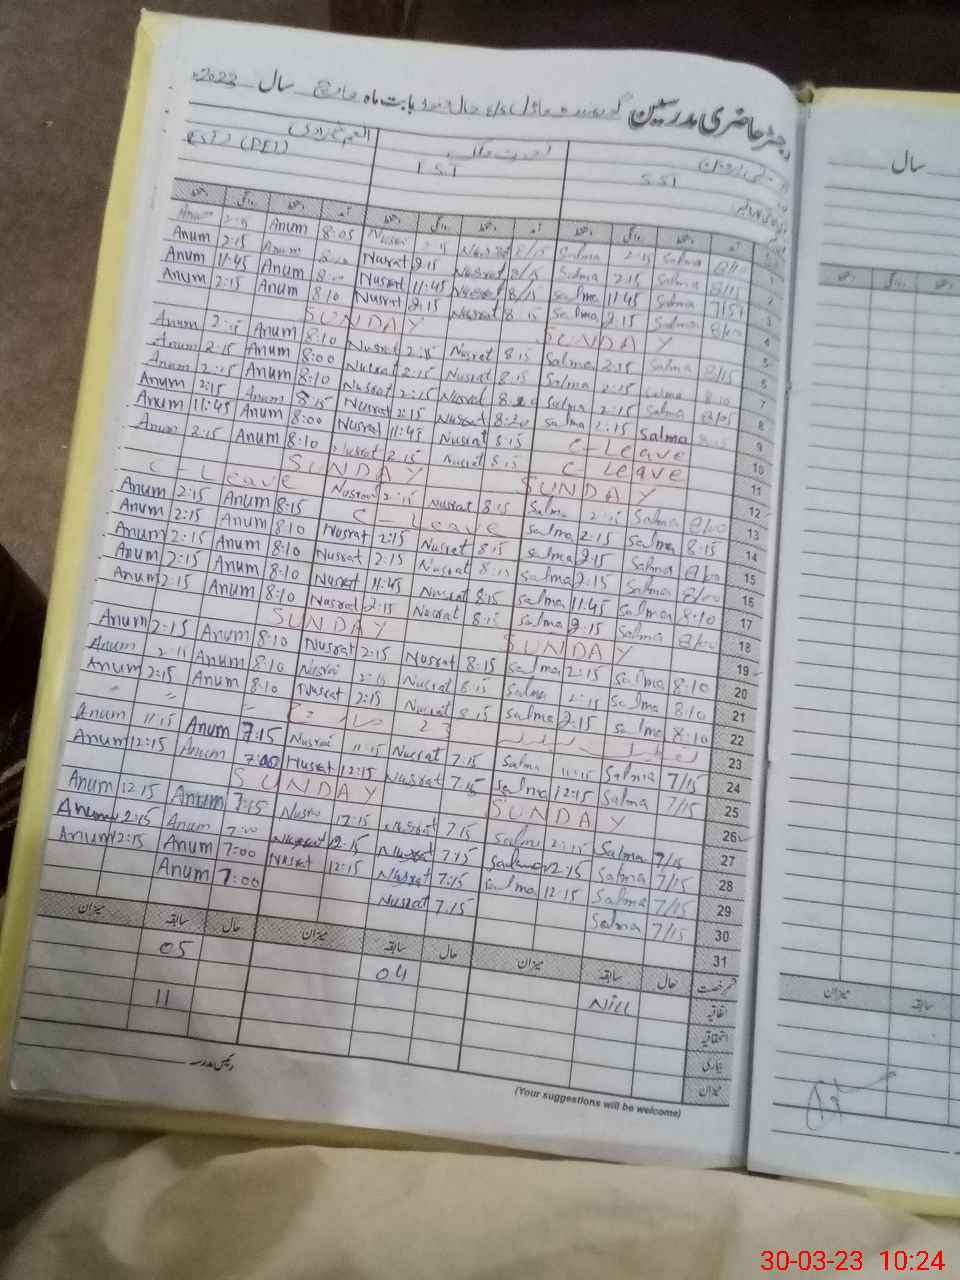 رجسٹر حاضری مدرسین بابت ماہ مارچ سال 2023ء
نصرت
SST EST EST (PET)
Anum 2:15 Anum 8:05 Nusrat 2:15 Nusrat 8/15 Salma 2:15 Salma 8/00 1
Anum 2:15 Anum 8:00 Nusrat 2:15 Nusrat 8/15 Salma 2:15 Salma 8/15 2
Anum 11:45 Anum 8:00 Nusrat 11:45 Nusrat 8/15 Salma 11:45 Salma 3
Anum 2:15 Anum 8:10 Nusrat 2:15 Nusrat 8:15 Salma 2:15 Salma 8/00 4
SUNDAY SUNDAY 5
Anum 2:15 Anum 8:10 Nusrat 2:15 Nusrat 8:15 Salma 2:15 Salma 8/15 6
Anum 2:15 Anum 8:00 Nusrat 2:15 Nusrat 8:15 Salma 2:15 Salma 8:10 7
Anum 2:15 Anum 8:10 Nusrat 2:15 Nusrat 8:20 Salma 2:15 Salma 8/05 8
Anum 2:15 Anum 8:15 Nusrat 2:15 Nusrat 8:20 Salma 2:15 Salma 8:15 9
Anum 11:45 Anum 8:00 Nusrat 11:45 Nusrat 8:15 C-Leave 10
Anum 2:15 Anum 8:10 Nusrat 2:15 Nusrat 8:15 C-Leave 11
SUNDAY SUNDAY 12
C-Leave Nusrat 2:15 Nusrat 8:15 Salma 2:15 Salma 8/00 13
Anum 2:15 Anum 8:15 C-Leave Salma 2:15 Salma 8:15 14
Anum 2:15 Anum 8:10 Nusrat 2:15 Nusrat 8:15 Salma 2:15 Salma 8/00 15
Anum 2:15 Anum 8:10 Nusrat 2:15 Nusrat 8:15 Salma 2:15 Salma 8/00 16
Anum 2:15 Anum 8:10 Nusrat 11:45 Nusrat 8:15 Salma 11:45 Salma 8:10 17
Anum 2:15 Anum 8:10 Nusrat 2:15 Nusrat 8:15 Salma 2:15 Salma 8/00 18
SUNDAY SUNDAY 19
Anum 2:15 Anum 8:10 Nusrat 2:15 Nusrat 8:15 Salma 2:15 Salma 8:10 20
Anum 2:15 Anum 8:10 Nusrat 2:15 Nusrat 8:15 Salma 2:15 Salma 8:10 21
Anum 2:15 Anum 8:10 Nusrat 2:15 Nusrat 8:15 Salma 2:15 Salma 8:10 22
23 مارچ 23
Anum 11:15 Anum 7:15 Nusrat 11:15 Nusrat 7:15 Salma 11:15 Salma 7/15 24
Anum 12:15 Anum 7:00 Nusrat 12:15 Nusrat 7:15 Salma 12:15 Salma 7/15 25
SUNDAY SUNDAY 26
Anum 12:15 Anum 7:15 Nusrat 12:15 Nusrat 7:15 Salma 2:15 Salma 7/15 27
Anum 2:15 Anum 7:00 Nusrat 12:15 Nusrat 7:15 Salma 12:15 Salma 7/15 28
Anum 2:15 Anum 7:00 Nusrat 12:15 Nusrat 7:15 Salma 12:15 Salma 7/15 29
Anum 7:00 Nusrat 7:15 Salma 7/15 30
31
قسم رخصت حال سابقہ میزان حال سابقہ میزان حال سابقہ میزان
اتفاقیہ Nill 04 05
استحقاقیہ
بیماری 11
میزان
رئیس مدرسہ
(Your suggestions will be welcome)
سال
سابقہ میزان
30-03-23 10:24